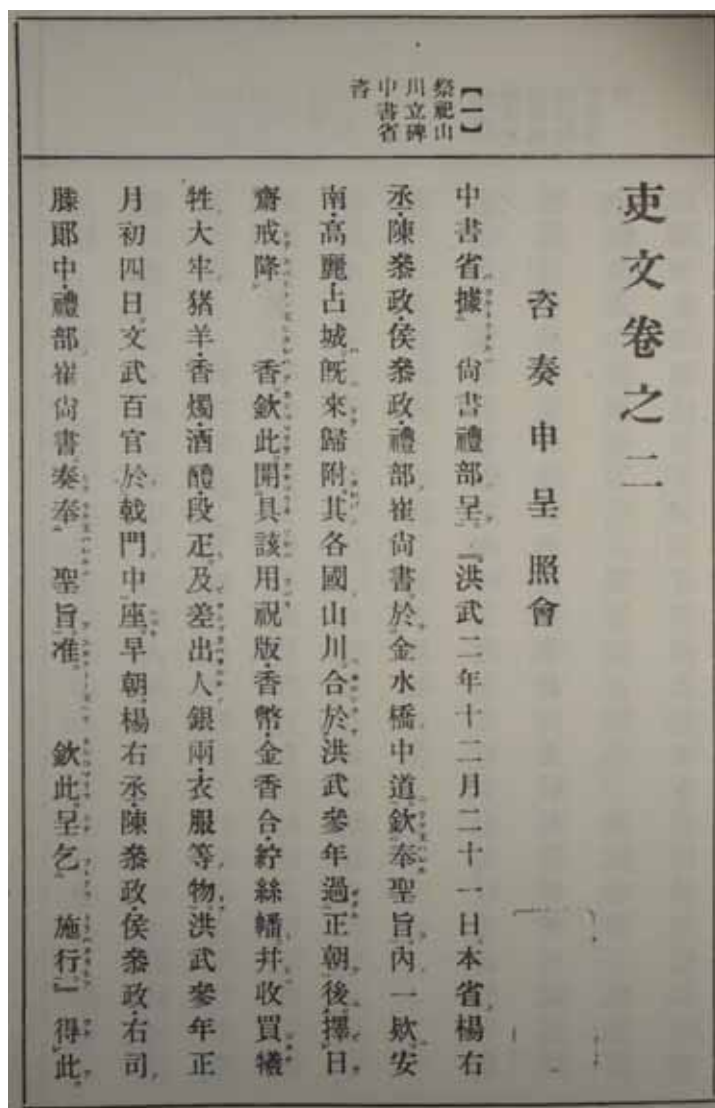 【一】
祭祀山
川立碑
中書省
咨
吏文卷之二
咨奏申呈照會
中書省據 尙書禮部呈『洪武二年十二月二十一日本省楊右
丞・陳叅政・侯叅政・禮部崔尙書於金水橋中道欽奉聖旨內一欵安
南・高麗・占城旣來歸附其各國山川合於洪武參年過正朝後擇日
齋戒降 香欽此開具該用祝版・香幣・金香合・紵絲幡幷收買犧
牲大牢・猪羊・香燭・酒醴・段疋及差出人銀兩・衣服等物洪武參年正
月初四日文武百官於戟門中座早朝楊右丞・陳叅政・侯叅政・右司
滕郞中・禮部崔尙書奏奉 聖旨准 欽此呈乞 施行』得此